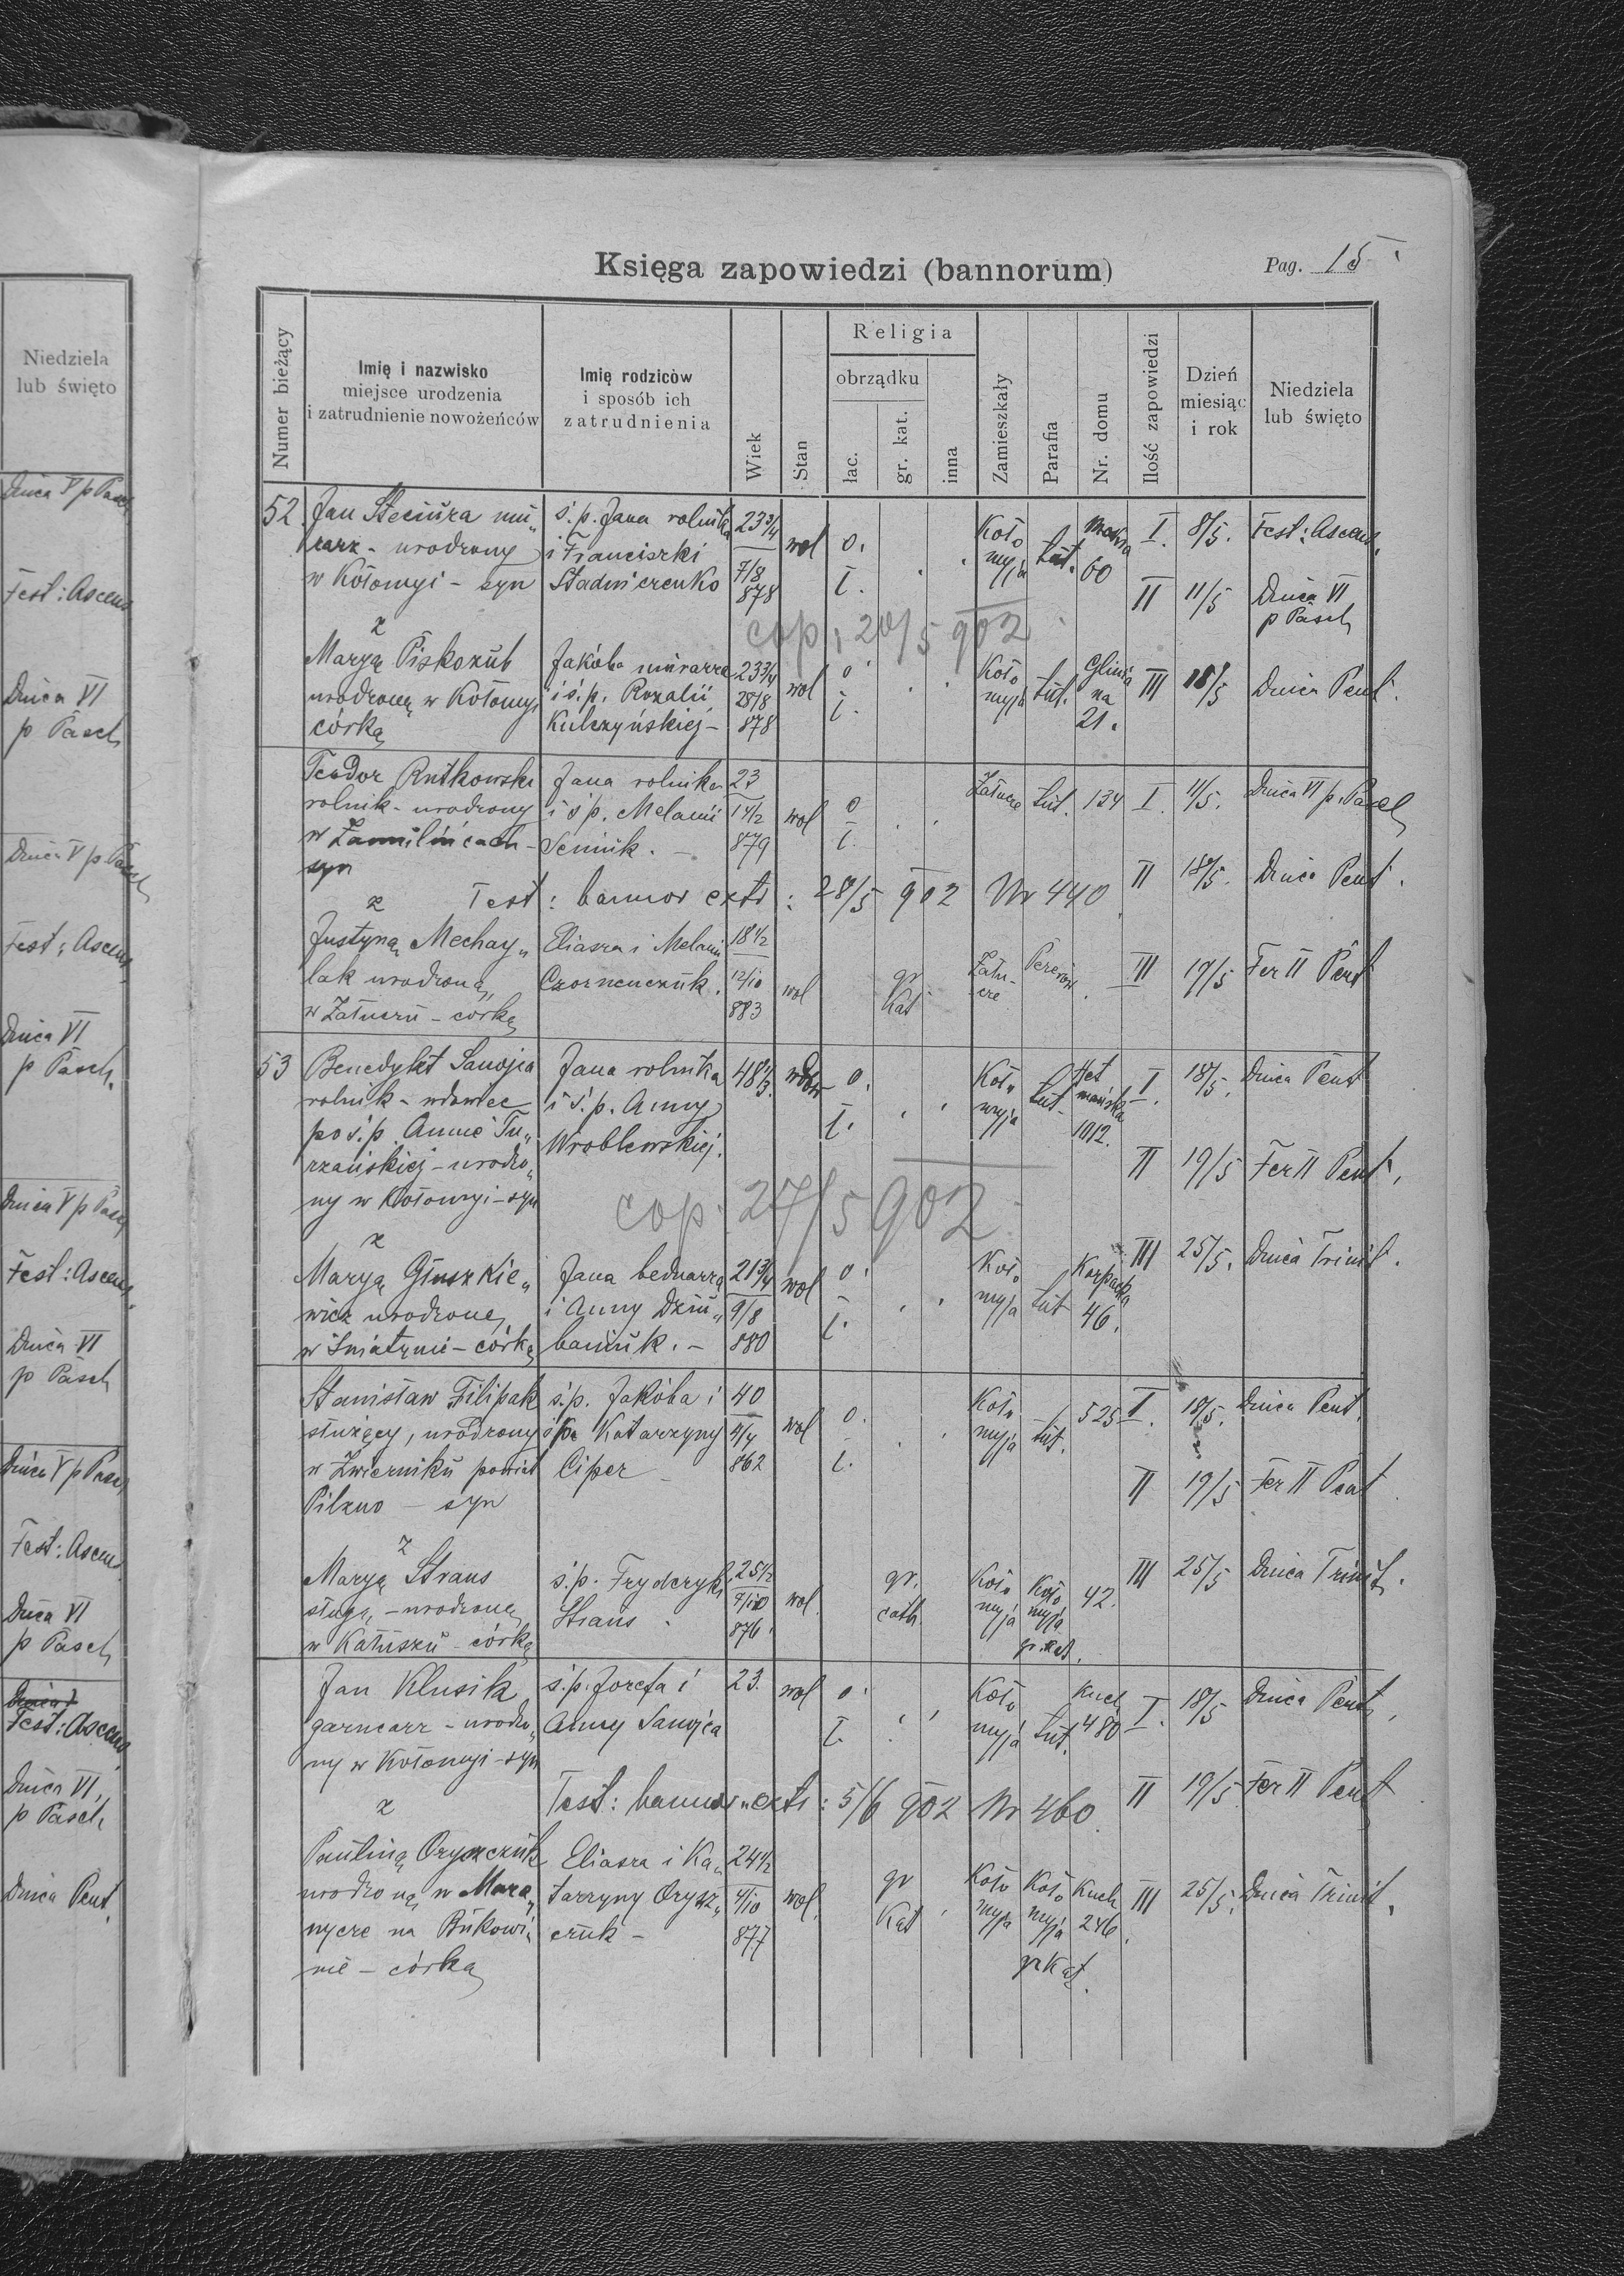 Niedziela
lub święto
Dnica V p Pasch
Fest: Ascens
Dnica VI
p Pasch
Dnica V p Pasch
Fest: Ascens
Dnica VI
p Pasch.
Dnica V p Pasch
Fest: Ascens.
Dnica VI
p Pasch
Dnica V p Pasch
Fest: Ascens
Dnica VI
p Pasch
Fest: Ascens
Dnica VI,
p Pasch,
Dnica Pent.
Księga zapowiedzi (bannorum)
Pag. 15
Numer bieżący
Imię i nazwisko
miejsce urodzenia
i zatrudnienie nowożeńców
Imię rodziców
i sposób ich
zatrudnienia
Wiek
Stan
Religia
obrządku
łac.
gr. kat.
inna
Zamieszkały
Parafia
Nr. domu
Ilość zapowiedzi
Dzień
miesiąc
i rok
Niedziela
lub święto
52 Jan Steciura mu„ ś. p. Jana rolnika 23¾ wol o. Koło tut. I. 8/5. Fest: Ascens.
rarz - urodzony i Franciszki 7/8 ł. myja 60
w Kołomyi - syn Stadniczenko 878 II 11/5 Dnica VI
p Pasch
z cop. 20/5 902
Maryą Piskozub Jakóba murarza 23¾ wol o Koło tut. Glinia III 18/5 Dnica Pent.
urodzoną w Kołomyi i ś. p. Rozalii 28/8 ł. myja na
córką Kulczyńskiej - 878 21.
Teodor Rutkowski Jana rolnika 23
rolnik - urodzony i ś p. Melanii 14/2 wol o Załucze tut. 134 I. 11/5. Dnica VI p. Pasch
w - Semnik. - 879 ł.
syn II 18/5. Dnica Pent.
z Test: bannor extr: 28/5 902 Nr 440
Justyną Mechay„ Eliasza i Melanii 18½
lak urodzoną Czornenczuk. 12/10 wol gr Kat Zału-cze III 19/5 Fer II Pent
w Załuczu - córką 883
53 Benedykt Sanojca Jana rolnika 48⅓. wdow o. Koło tut. Het I. 18/5. Dnica Pent
rolnik - wdowiec i ś. p. Anny ł. myja mańska
po ś. p. Annie Tu„ Wroblewskiej. 1012.
rzańskiej - urodzo„ II 19/5 Fer II Pent.
ny w Kołomyi - syn
cop. 27/5 902
z
Maryą Głuszkie„ Jana bednarza 21¾ wol o. Koło tut Karpacka III 25/5. Dnica Trinit.
wicz urodzoną i Anny Dziu„ 9/8 ł. myja 46.
w Śniatynie - córką baniuk. - 880
Stanisław Filipak ś. p. Jakóba i 40 wol o. Koło tut. 525 I. 18/5. Dnica Pent.
służący, urodzony Katarzyny 4/4 ł. myja
w Zwierniku powiat Ciper 862
Pilzno - syn II 19/5 Fer II Pent
z
Maryą Straus ś. p. Fryderyka 25½ wol. gr. Koło Koło 42. III 25/5 Dnica Trinit.
sługą, - urodzoną Straus. 7/10 cath. myja myja
w Kałuszu - córką 876. gr. kat.
Jan Klusik ś. p. Józefa i 23. wol o. Koło tut. Kuch I. 18/5 Dnica Pent,
garncarz - urodzo„ Anny Sanojca ł. myja 480
ny w Kołomyi - syn
z Test: bannor. extr: 5/6 902 Nr 460. II 19/5 Fer II Pent
Pauliną Oryszczuk Eliasza i Ka„ 24½ wol. gr Koło Koło Kuch III 25/5. Dnica Trinit.
urodzoną w Mara„ tarzyny Orysz„ 4/10 Kat myja myja 246.
nycze na Bukowi„ czuk - 877
nie - córką gr Kat.